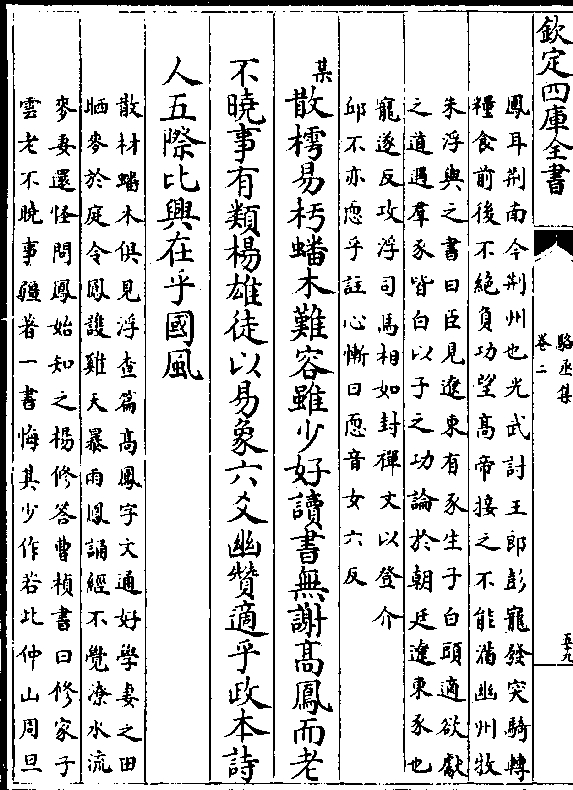 欽定四庫全書
駱丞集
卷二
五十九
鳳耳荆南今荆州也光武討王郎彭寵發突騎轉
糧食前後不絶負功望髙帝接之不能滿幽州牧
朱浮與之書曰臣見遼東有豕生子白頭適欲獻
之道遇羣豕皆白以子之功論於朝廷遼東豕也
寵遂反攻浮司馬相如封禪文以登介
邱不亦恧乎註心慚曰恧音女六反
某散樗易朽蟠木難容雖少好讀書無謝髙鳳而老
不曉事有類楊雄徒以易象六爻幽贊適乎政本詩
人五際比興在乎國風
散材蟠木俱見浮查篇髙鳳字文通好學妻之田
晒麥於庭令鳳護雞天暴雨鳳誦經不覺潦水流
麥妻還怪問鳳始知之楊修答曹植書曰修家子
雲老不曉事疆著一書悔其少作若此仲山周旦